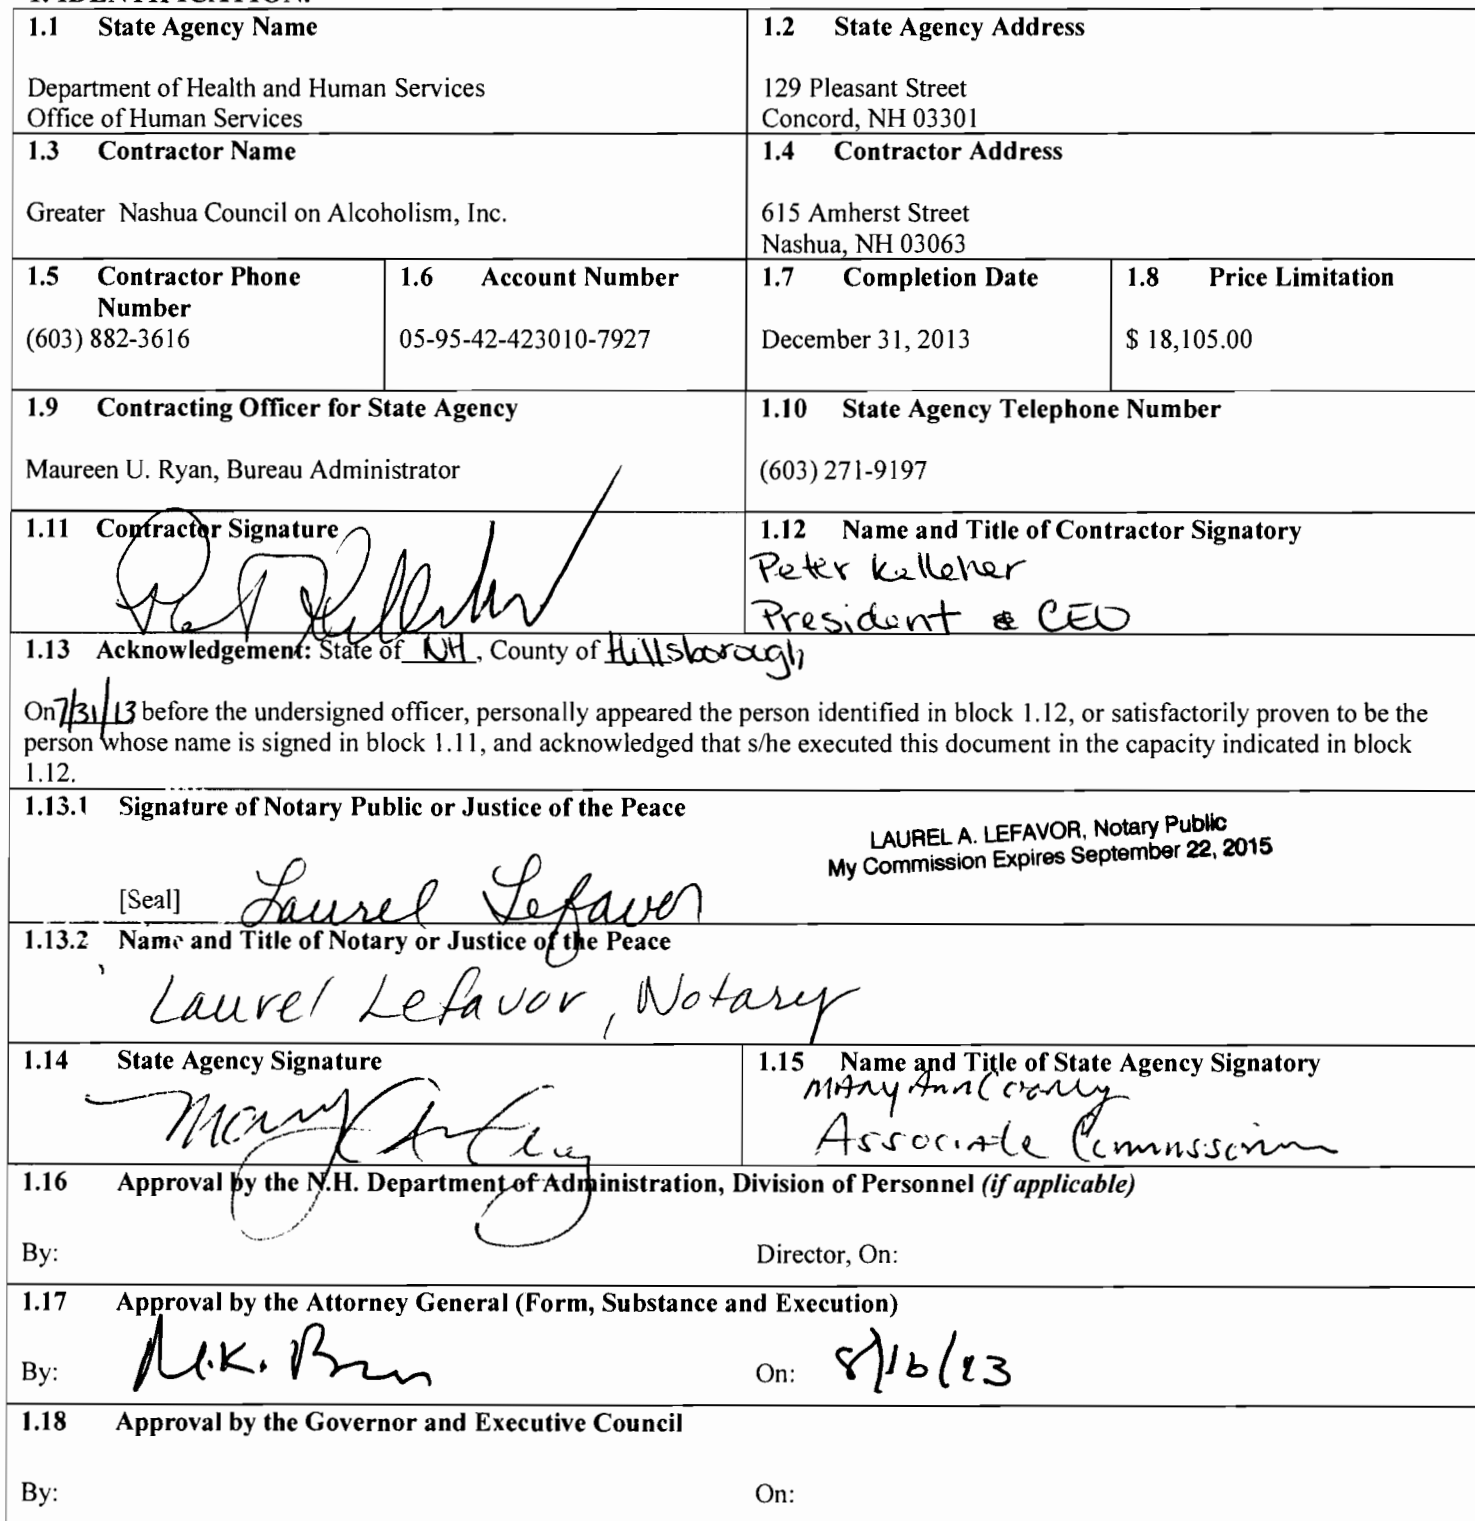 1.1 State Agency Name
Department of Health and Human Services
Office of Human Services
1.2 State Agency Address
129 Pleasant Street
Concord, NH 03301
1.3 Contractor Name
Greater Nashua Council on Alcoholism, Inc.
1.4 Contractor Address
615 Amherst Street
Nashua, NH 03063
1.5 Contractor Phone
Number
(603) 882-3616
1.6 Account Number
05-95-42-423010-7927
1.7 Completion Date
December 31, 2013
1.8 Price Limitation
$ 18,105.00
1.9 Contracting Officer for State Agency
Maureen U. Ryan, Bureau Administrator
1.10 State Agency Telephone Number
(603) 271-9197
1.11 Contractor Signature
1.12 Name and Title of Contractor Signatory
Peter Kelleher
President & CEO
1.13 Acknowledgement: State of NH, County of Hillsborough
On 7/31/13 before the undersigned officer, personally appeared the person identified in block 1.12, or satisfactorily proven to be the
person whose name is signed in block 1.11, and acknowledged that s/he executed this document in the capacity indicated in block
1.12.
1.13.1 Signature of Notary Public or Justice of the Peace
LAUREL A. LEFAVOR, Notary Public
My Commission Expires September 22, 2015
[Seal] Laurel Lefavor
1.13.2 Name and Title of Notary or Justice of the Peace
Laurel Lefavor, Notary
1.14 State Agency Signature
1.15 Name and Title of State Agency Signatory
Mary Ann Cooney
Associate Commissioner
1.16 Approval by the N.H. Department of Administration, Division of Personnel (if applicable)
By:
Director, On:
1.17 Approval by the Attorney General (Form, Substance and Execution)
By:
On:
1.18 Approval by the Governor and Executive Council
By:
On: